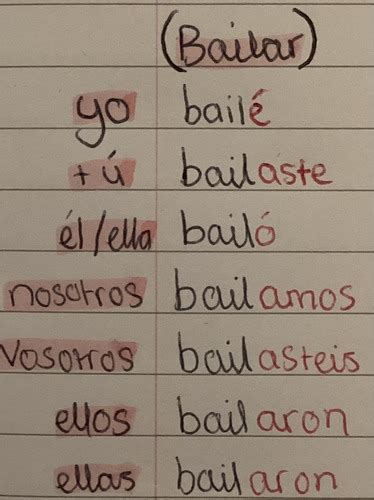 (Bailar)
yo bailé
tú bailaste
él/ella bailó
nosotros bailamos
vosotros bailasteis
ellos bailaron
ellas bailaron